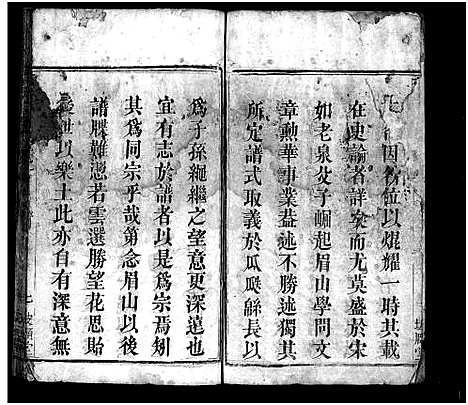 因名位以焜耀一時其載
在史論者詳矣而尤莫盛於宋
如老泉父子崛起眉山學問文
章勳華事業益述不勝述獨其
所定譜式取義於瓜瓞緜長以
爲子孫繩繼之望意更深遠也
宜有志於譜者以是爲宗焉矧
其爲同宗乎哉第念眉山以後
譜牒難悉若雲選勝望花思貽
世以樂土此亦自有深意無